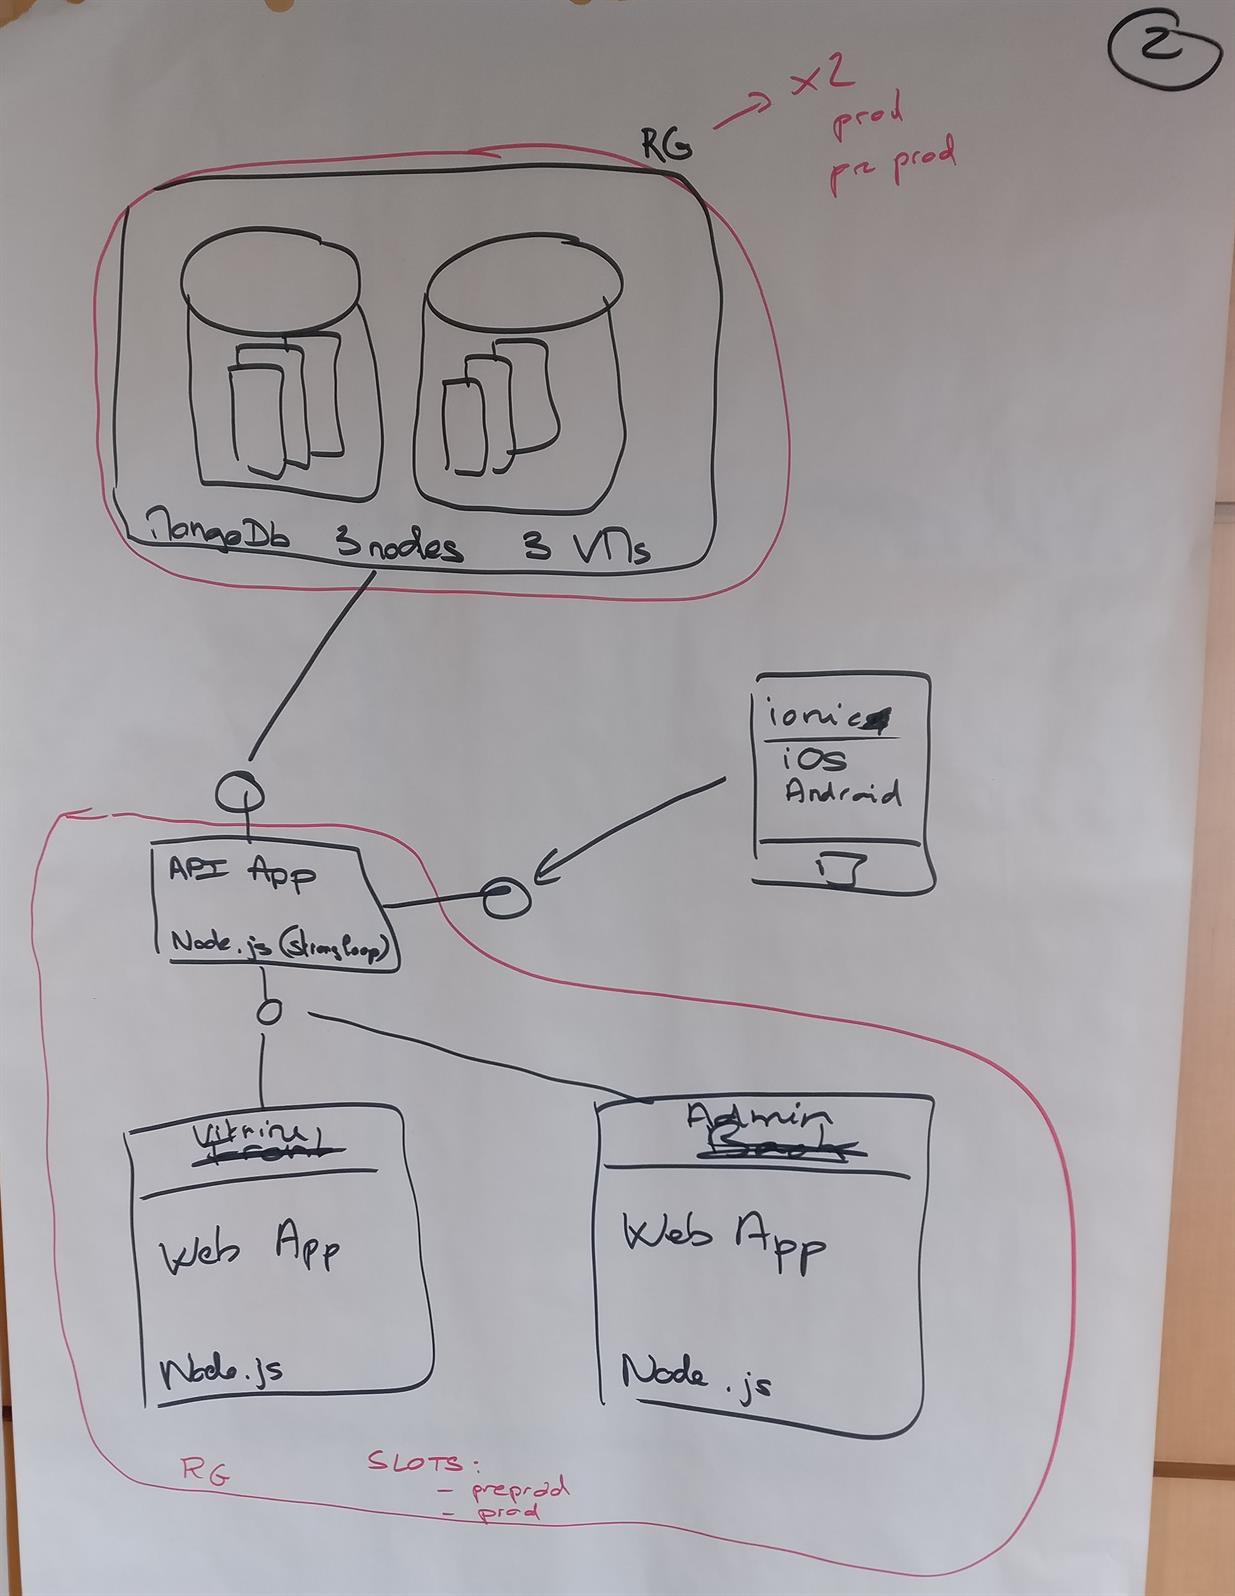 2
RG
x2
prod
pre prod
MongoDb 3 nodes 3 VMs
ionic
iOS
Android
API App
Node.js (strongloop)
Vitrine
Front
Web App
Node.js
Admin
Back
Web App
Node.js
RG
SLOTS:
- preprod
- prod